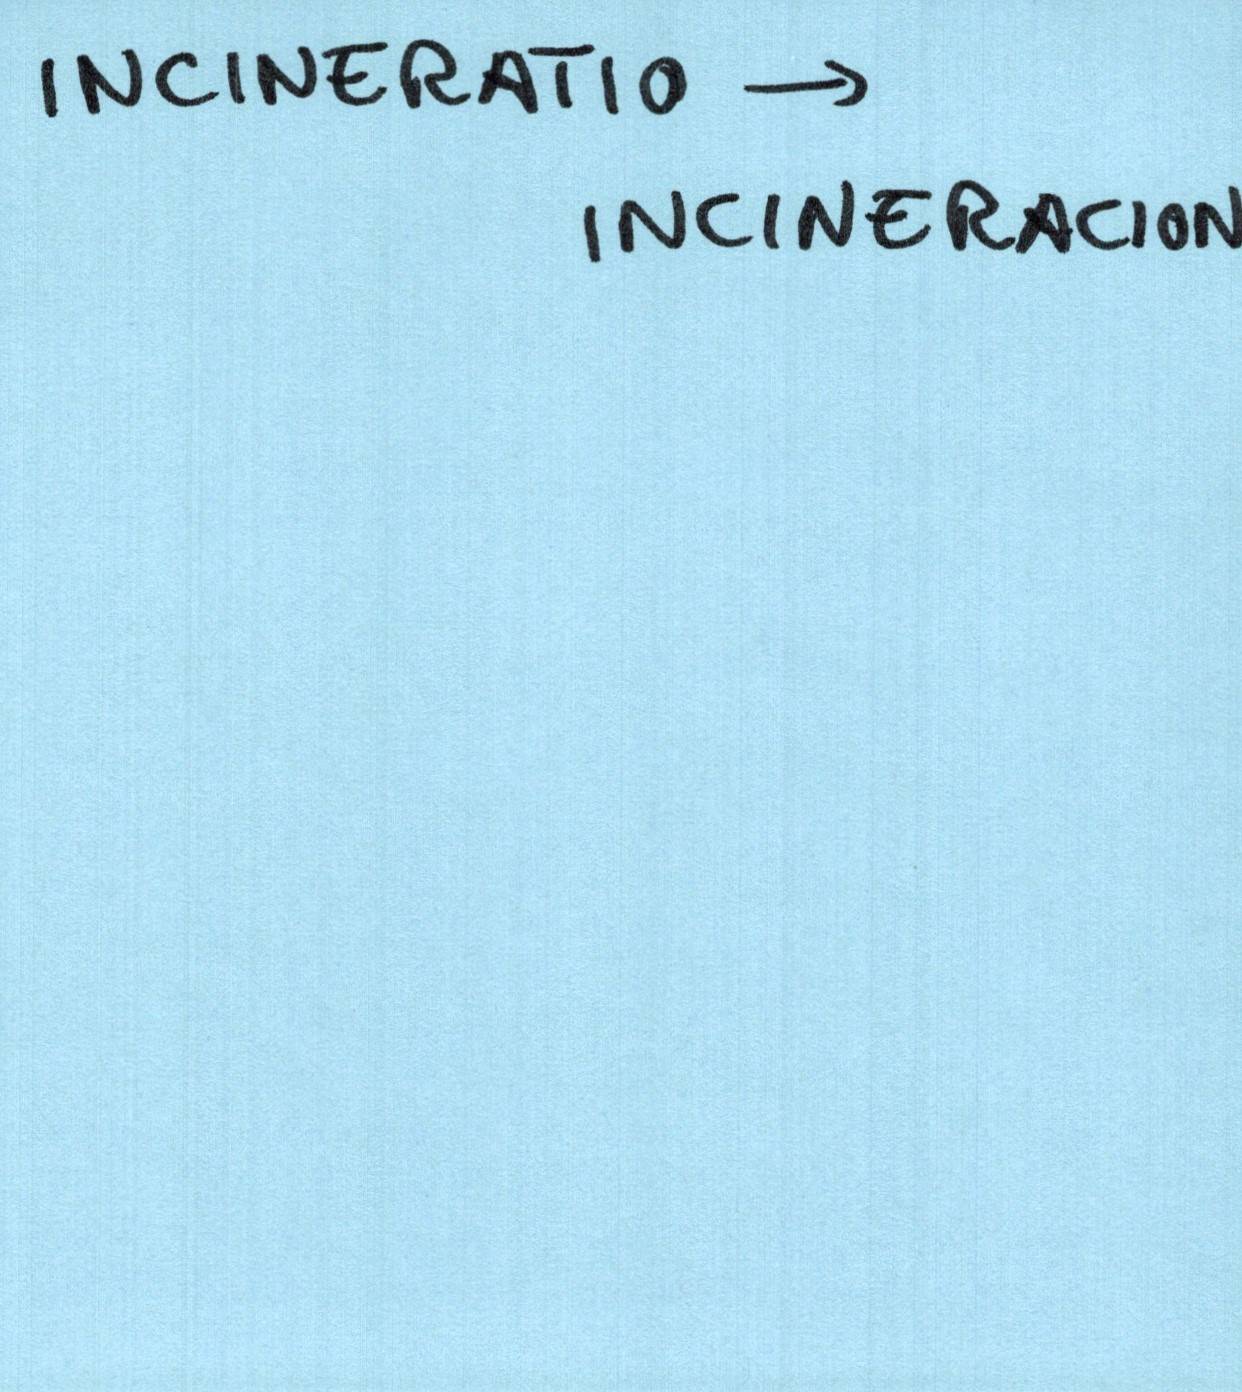 INCINERATIO →
INCINERACION